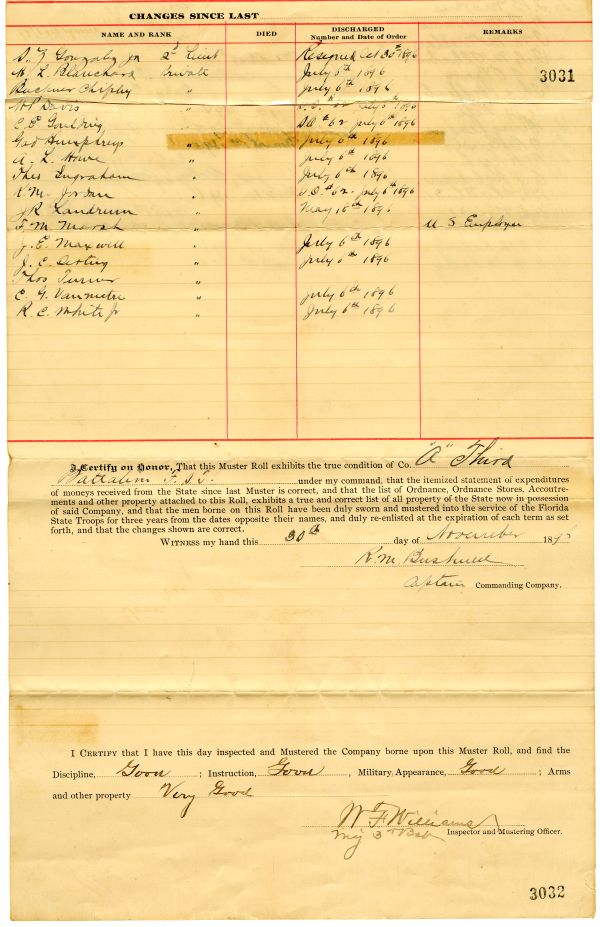 CHANGES SINCE LAST
NAME AND RANK DIED DISCHARGED Number and Date of Order REMARKS
S. Gonzalez Jr 2d Lieut Resigned Oct 30th 1896
W. L. Blanchard Private July 6th 1896
3031
Buckner Chipley " July 6th 1896
W P Davis " S.O. #62 July 6th 1896
C E Goulding " S.O. #62 July 6th 1896
Geo Humphreys " July 6th 1896
A. L. Howe " July 6th 1896
Theo Ingraham " July 6th 1896
R. M. Jordan " S.O. #62. July 6th 1896
J R Landrum " May 18th 1896
F. M. Marsh " U S Employee
J. E. Maxwell " July 6th 1896
J. C. " July 6th 1896
Thos Turner "
C. G. Vanmetre " July 6th 1896
R. C. White Jr " July 6th 1896
I Certify on Honor, That this Muster Roll exhibits the true condition of Co. "A" Third
Battalion F.S.T. under my command, that the itemized statement of expenditures
of moneys received from the State since last Muster is correct, and that the list of Ordnance, Ordnance Stores, Accoutre-
ments and other property attached to this Roll, exhibits a true and correct list of all property of the State now in possession
of said Company, and that the men borne on this Roll have been duly sworn and mustered into the service of the Florida
State Troops for three years from the dates opposite their names, and duly re-enlisted at the expiration of each term as set
forth, and that the changes shown are correct.
WITNESS my hand this 30th day of November 189
R. M. Bushnell
Captain Commanding Company.
I CERTIFY that I have this day inspected and Mustered the Company borne upon this Muster Roll, and find the
Discipline, Good ; Instruction, Good , Military Appearance, Good ; Arms
and other property Very Good
Wm F Williams
Maj 3d Bat Inspector and Mustering Officer.
3032